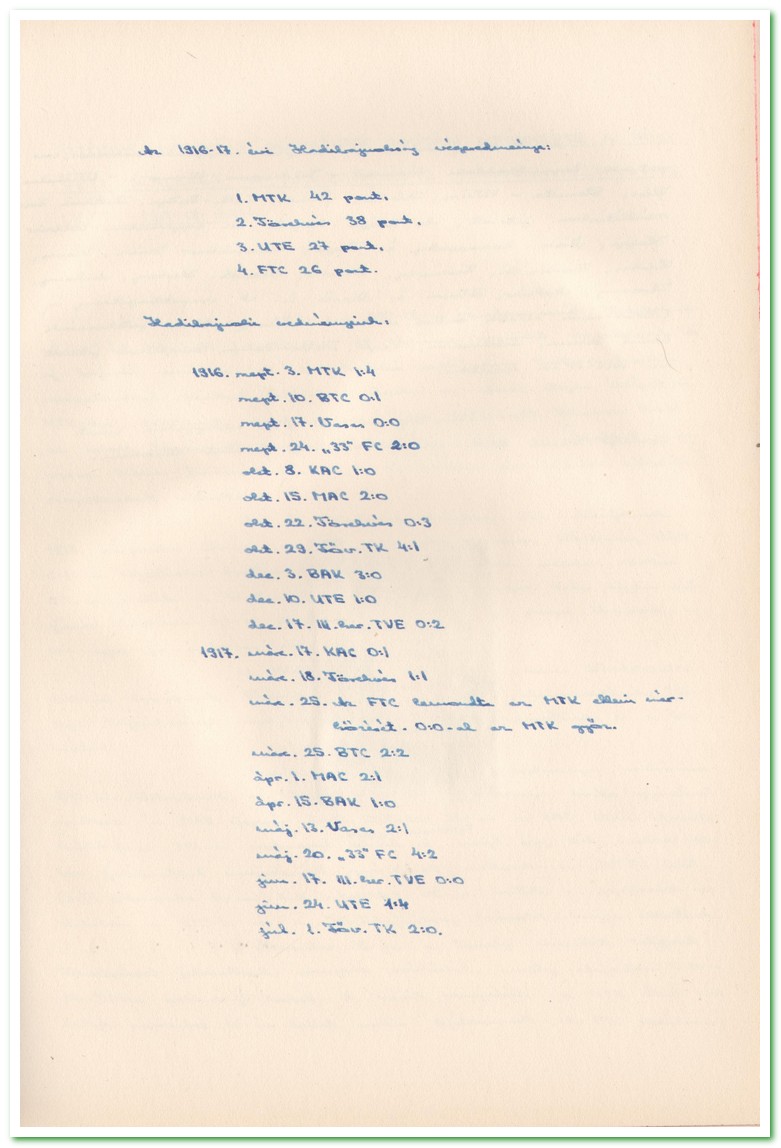 Az 1916-17. évi Hadibajnokság végeredménye:
1. MTK 42 pont.
2. Törekvés 38 pont.
3. UTE 27 pont.
4. FTC 26 pont.
Hadibajnoki eredményeink:
1916. szept. 3. MTK 1:4
szept. 10. BTC 0:1
szept. 17. Vasas 0:0
szept. 24. „33" FC 2:0
okt. 8. KAC 1:0
okt. 15. MAC 2:0
okt. 22. Törekvés 0:3
okt. 29. Föv. TK 4:1
dec. 3. BAK 3:0
dec. 10. UTE 1:0
dec. 17. III. ker. TVE 0:2
1917. márc. 17. KAC 0:1
márc. 18. Törekvés 1:1
márc. 25. Az FTC lemondta az MTK elleni mér-
kőzését. 0:0-al az MTK győz.
márc. 25. BTC 2:2
ápr. 1. MAC 2:1
ápr. 15. BAK 1:0
máj. 13. Vasas 2:1
máj. 20. „33" FC 4:2
jun. 17. III. ker. TVE 0:0
jún. 24. UTE 1:4
júl. 1. Föv. TK 2:0.